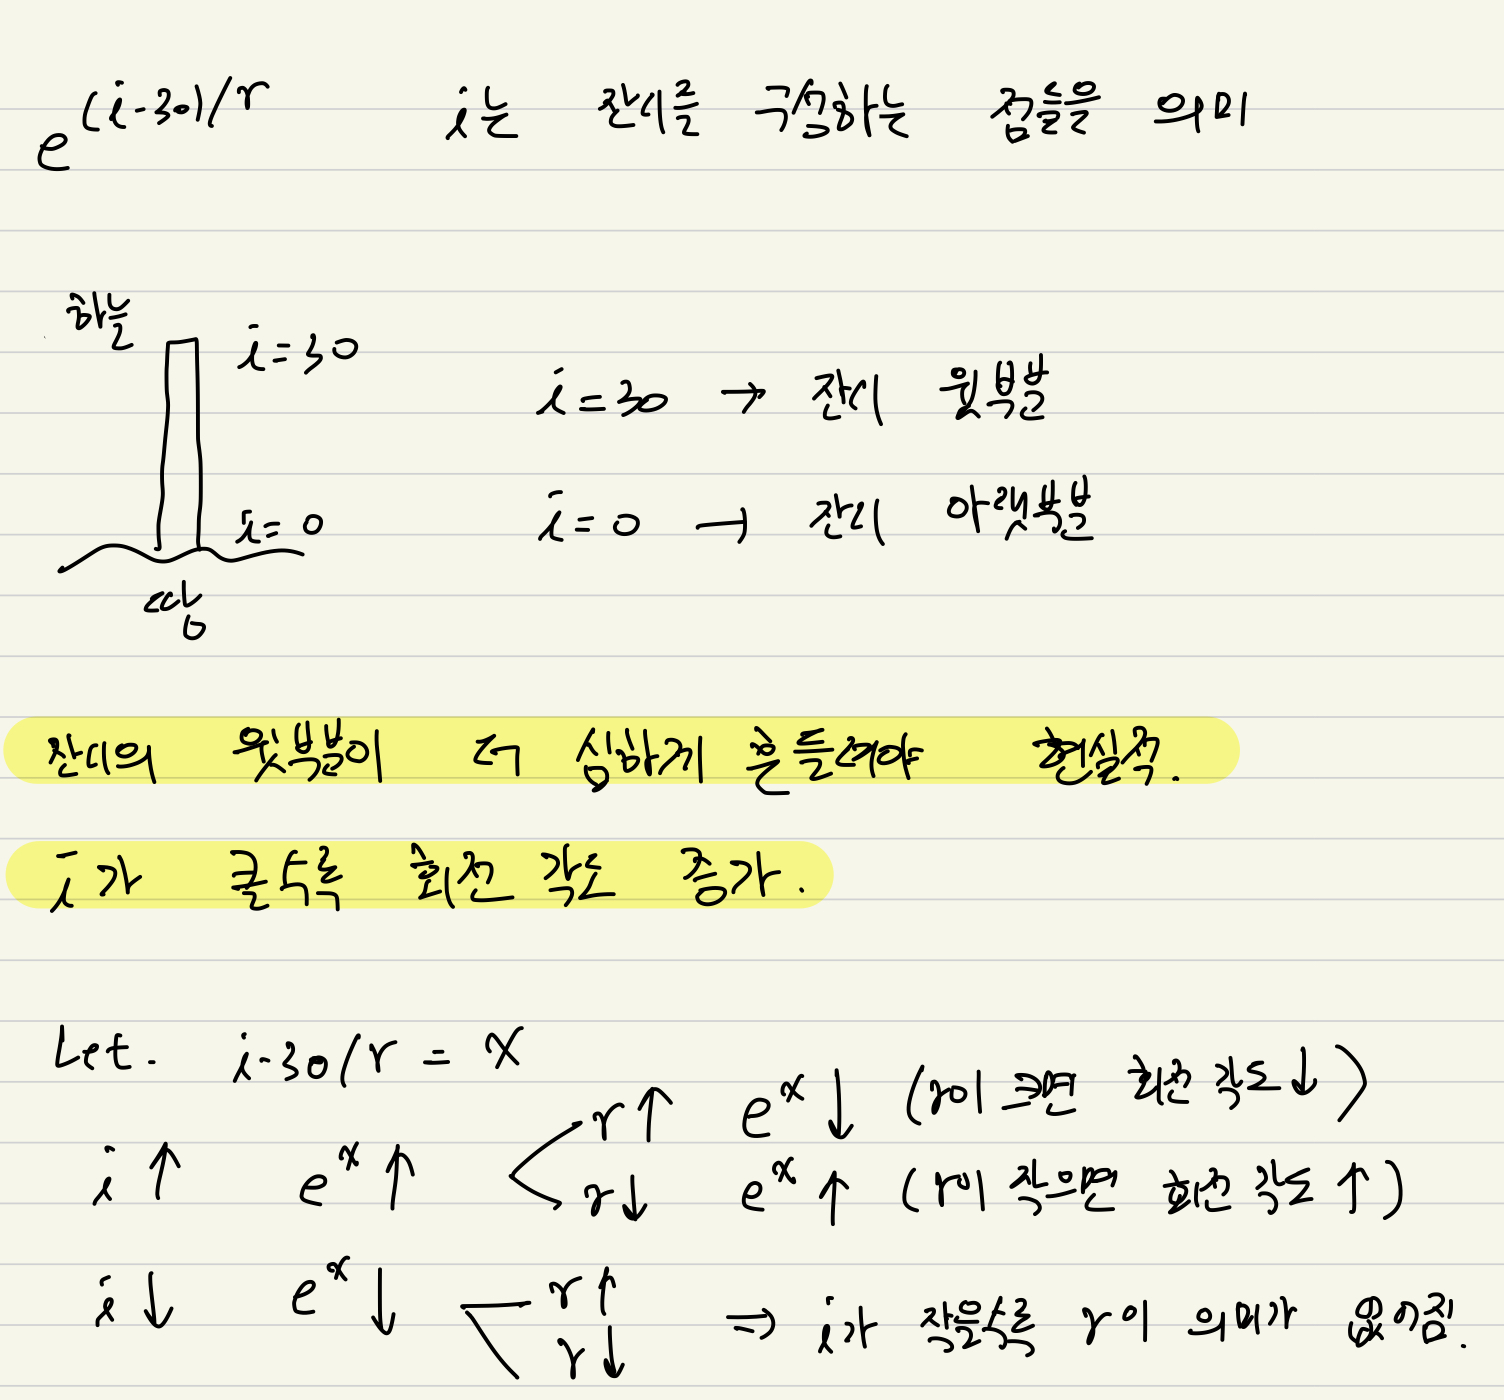 e^(i-30)/r i는 잔디를 구성하는 점들을 의미
하늘
i=30
i=30 → 잔디 윗부분
i=0
i=0 → 잔디 아랫부분
땅
잔디의 윗부분이 더 심하게 흔들려야 현실적.
i가 클수록 회전 각도 증가.
Let. i-30/r = x
r↑ e^x↓ (r이 크면 회전 각도↓)
i↑ e^x↑
r↓ e^x↑ (r이 작으면 회전 각도↑)
i↓ e^x↓ r↑
r↓
⇒ i가 작을수록 r이 의미가 없어짐.